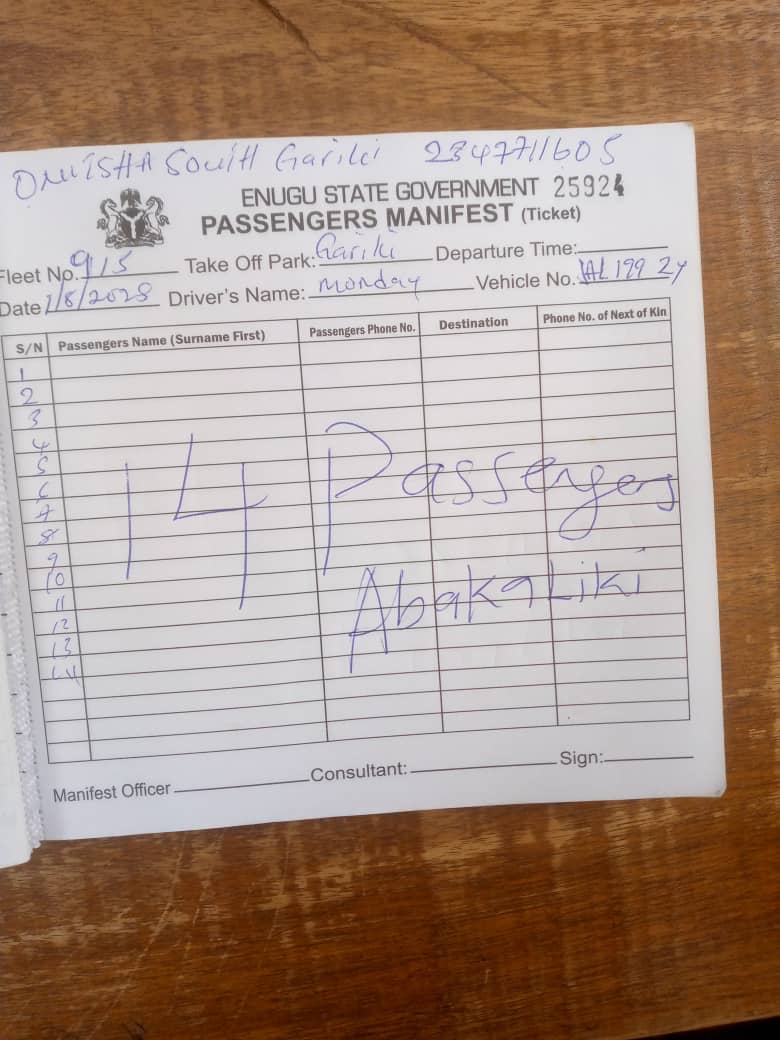 ONITSHA SOUTH Gariki 2347711605
ENUGU STATE GOVERNMENT 25924
PASSENGERS MANIFEST (Ticket)
Fleet No. 915 Take Off Park: Gariki Departure Time:
Date 1/8/2025 Driver's Name: Monday Vehicle No. 199 ZY
S/N Passengers Name (Surname First) Passengers Phone No. Destination Phone No. of Next of Kin
1
2
3
4
5
6
7
8
9
10
11
12
13
14
14 Passengers
Abakaliki
Manifest Officer Consultant: Sign: